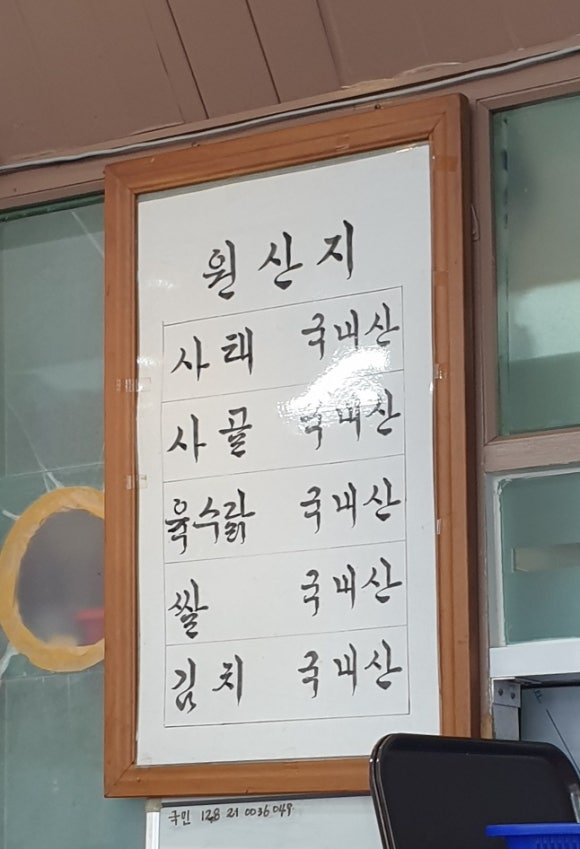 원산지
사태 국내산
사골 국내산
육수닭 국내산
쌀 국내산
김치 국내산
국민 128 21 0036 049